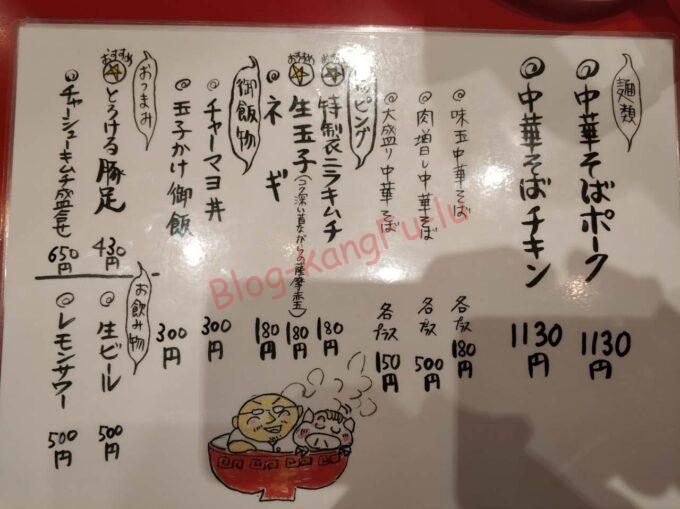 麺類
◎中華そばポーク
1130円
◎中華そばチキン
1130円
◎味玉中華そば
各プラス
180円
◎肉増し中華そば
各プラス
500円
◎大盛り中華そば
各プラス
150円
ッピング
おすすめ
特製ニラキムチ
180円
おすすめ
生玉子(コク深い昔ながらの薩摩赤玉)
180円
◎ネギ
180円
御飯物
◎チャーマヨ丼
300円
◎玉子かけ御飯
300円
おつまみ
おすすめ
とろける豚足
430円
◎チャーシューキムチ盛合せ
650円
お飲み物
◎生ビール
500円
◎レモンサワー
500円
Blog-KangFuFu